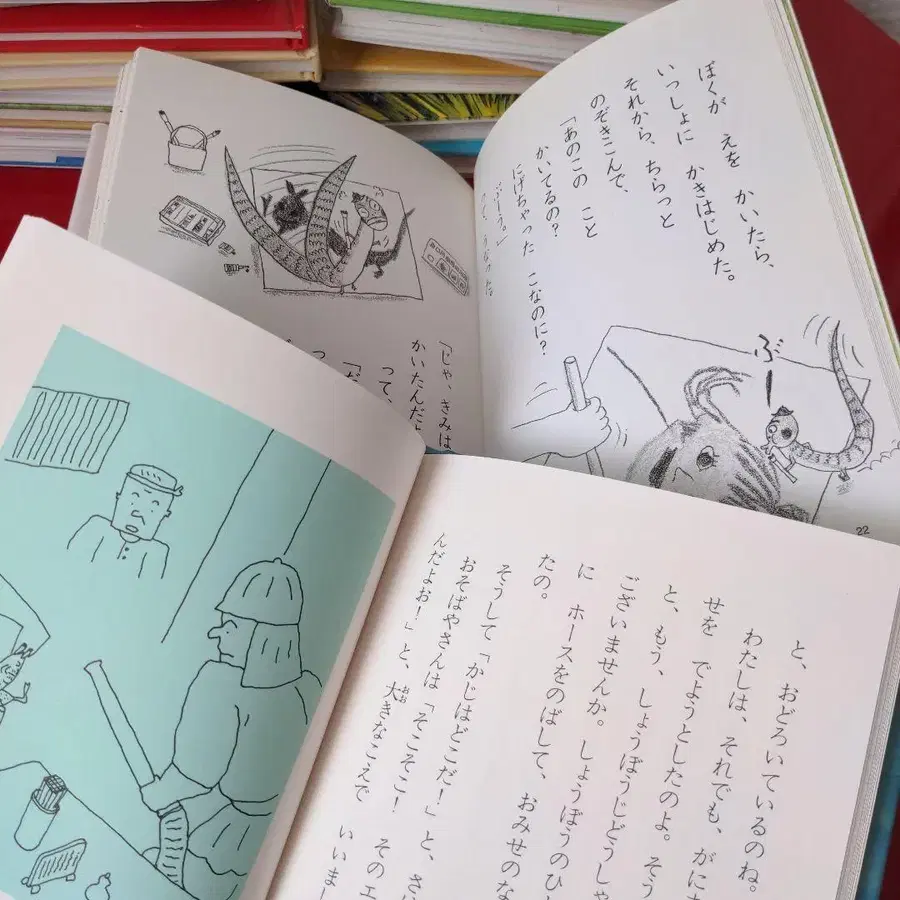 ぼくが えを かいたら、
いっしょに かきはじめた。
それから、ちらっと
のぞきこんで、
「あのこの こと
かいてるの?
にげちゃった こなのに?
ぶー
22
「じゃ、きみは
かいたんだ」
って、
「だ
つ
と、おどろいているのね。
わたしは、それでも、がに
せを でようとしたのよ。そう
と、もう、しょうぼうじどうしゃ
ございませんか。しょうぼうのひ
に ホースをのばして、おみせのな
たの。
そうして「かじはどこだ!」と、さ
おそばやさんは「そこそこ! そのエ
んだよお!」と、大きなこえで いいま
おお